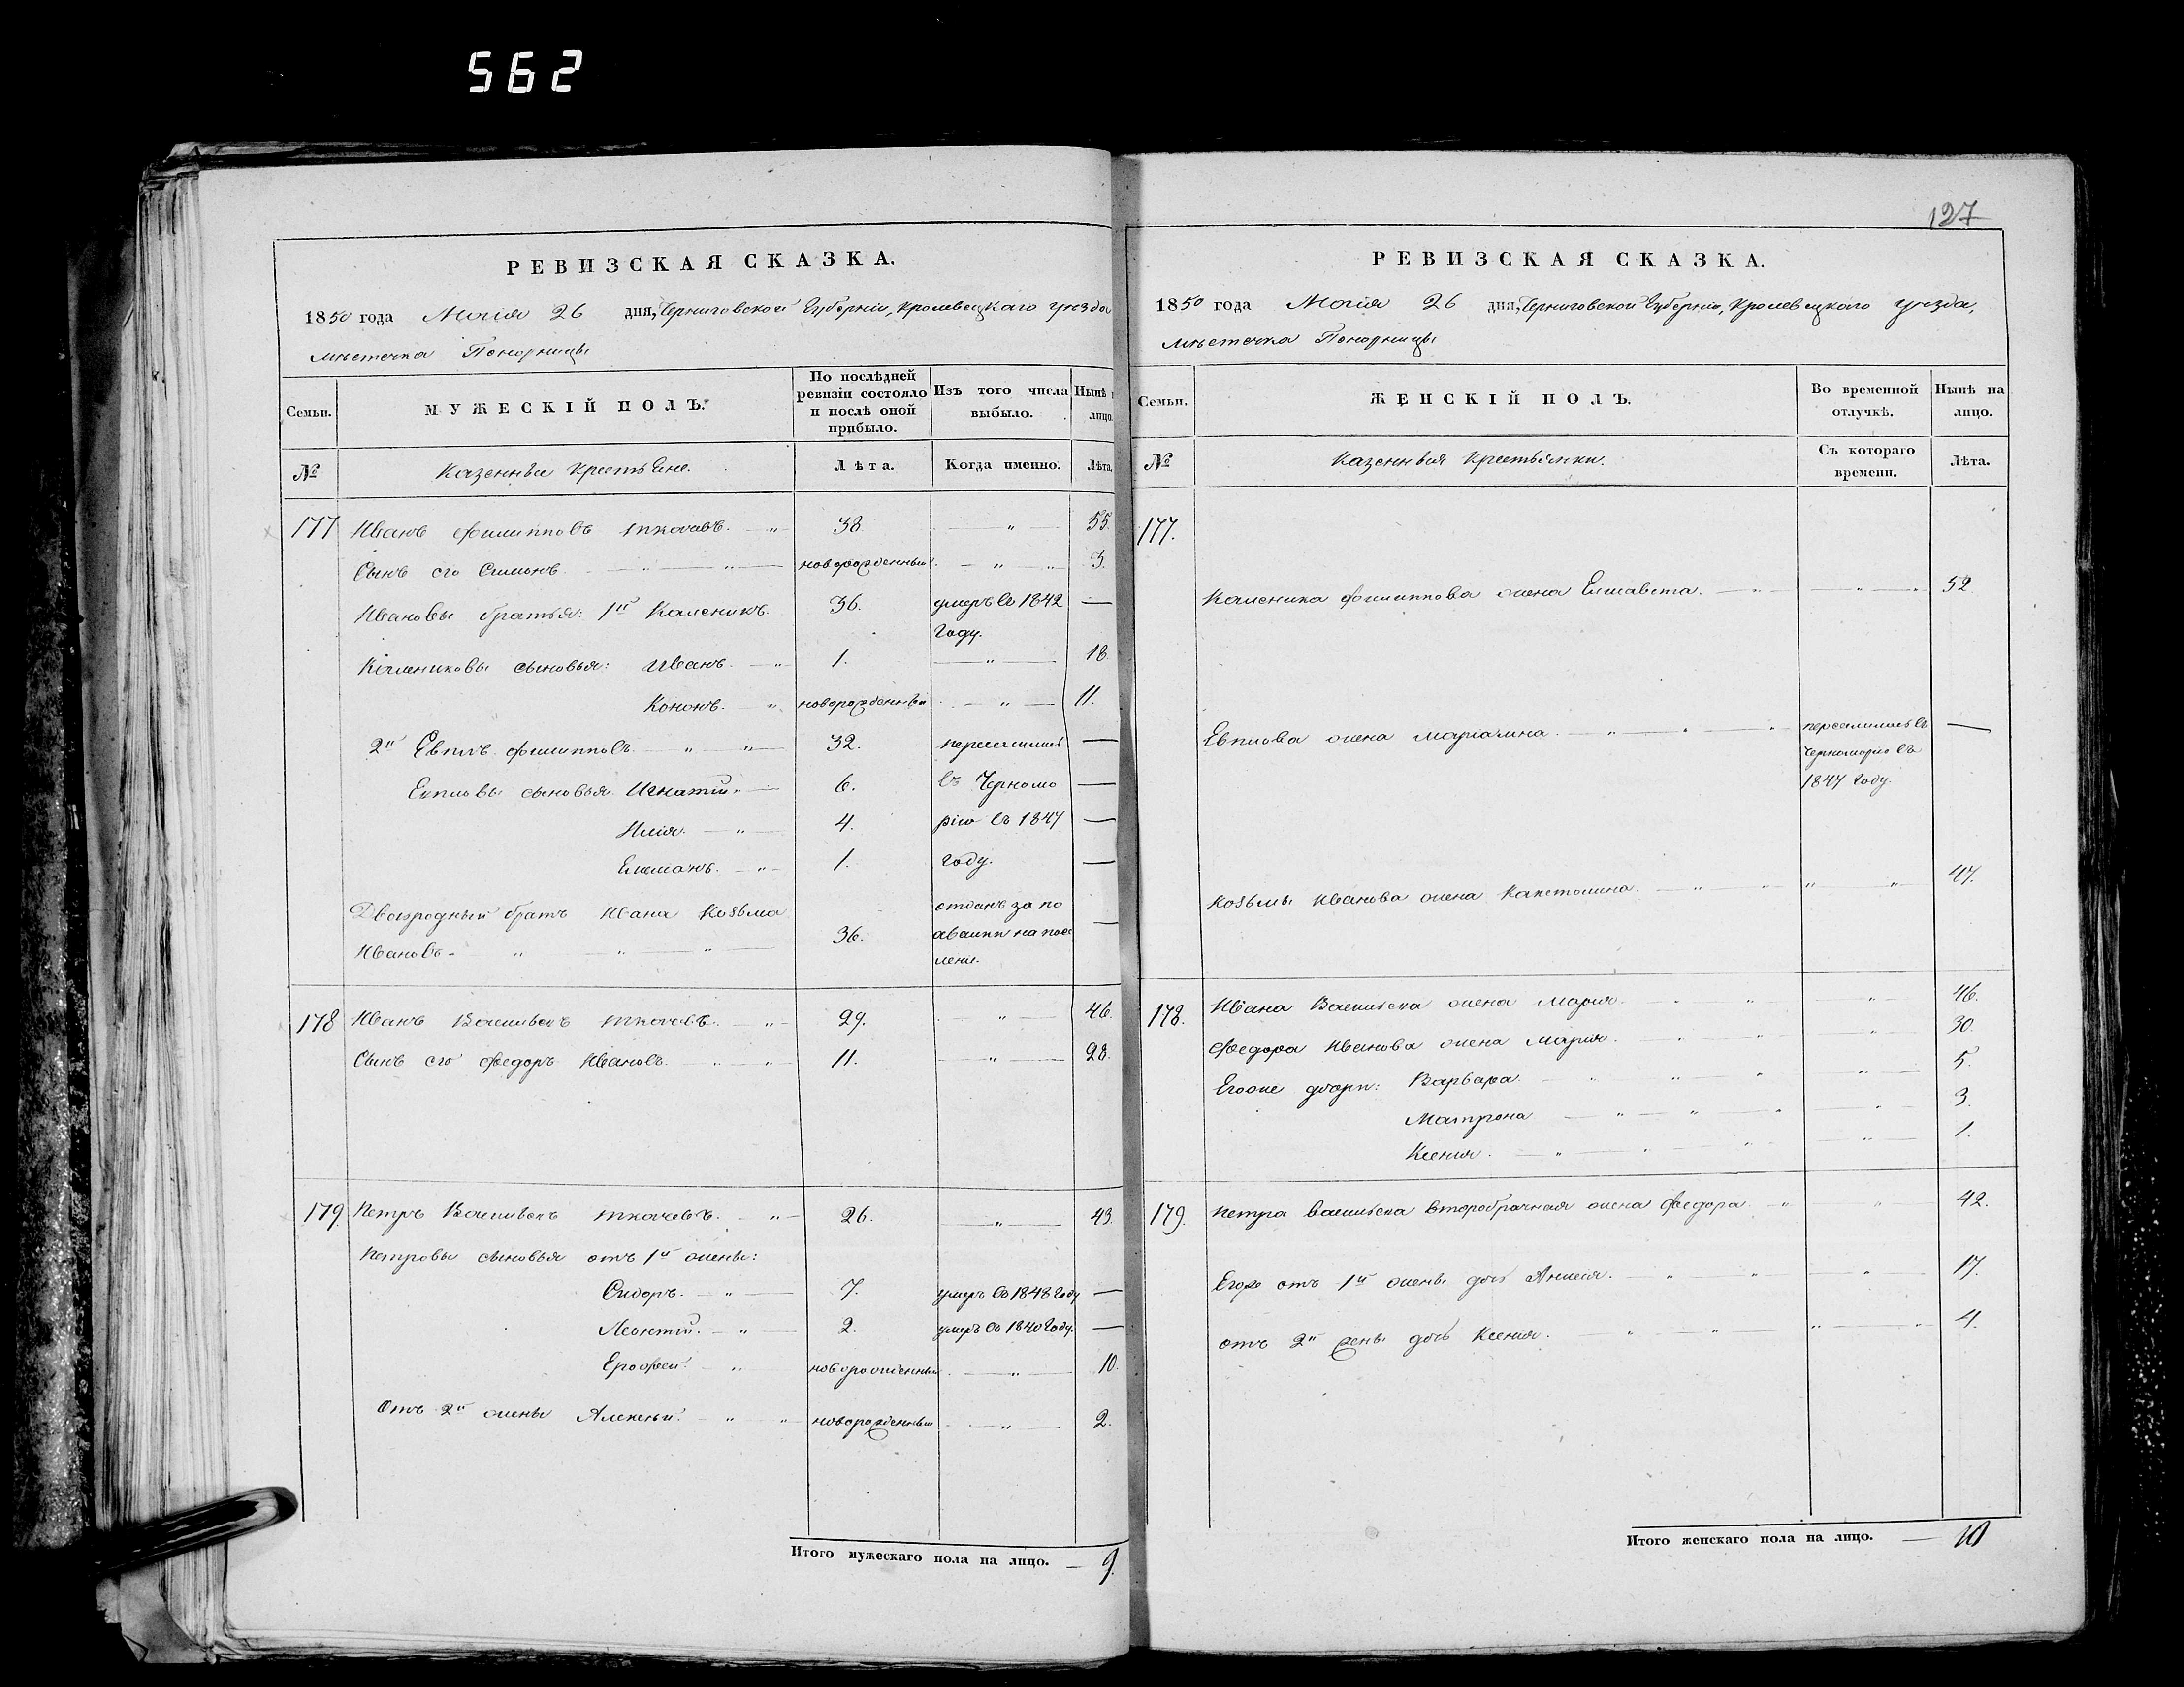 562
127
РЕВИЗСКАЯ СКАЗКА.
1850 года Маія 26 дня, Черниговской Губерніи, Кролевецкаго уезда
мѣстечка Понорницы
Семьи. МУЖЕСКІЙ ПОЛЪ. По послѣдней ревизіи состояло и послѣ оной прибыло. Изъ того числа выбыло. Нынѣ лицо.
№ Казенные Крестьяне. Лѣта. Когда именно. Лѣта.
177 Иванъ Филипповъ Ткачевъ. 38. " 55.
Сынъ его Симонъ. новорожденный. " 3.
Ивановы братья: 1й Каленикъ. 36. умеръ въ 1842 —
Году.
Калениковы сыновья: Иванъ. 1. " 18.
Кононъ. новорожденный " 11.
2й Евплъ Филипповъ 32. переселились —
Евпловы сыновья Игнатій 6. въ Черномо —
Илія. 4. рію въ 1847 —
1. Году. —
Двоюродный братъ Ивана Козьма отданъ за по
Ивановъ. 36. —
178 Иванъ Васильевъ Ткачевъ. 29. " 46.
Сынъ его Федоръ Ивановъ. 11. " 28.
179 Петръ Васильевъ Ткачевъ. 26. " 43.
Петровы сыновья отъ 1й жены:
Сидоръ. 7. умеръ въ 1848 Году —
Леонтій. 2. умеръ въ 1840 Году. —
Ерофей. новорожденный " 10.
Отъ 2й жены Алексей. новорожденный " 2.
Итого мужескаго пола на лицо. — 9.
РЕВИЗСКАЯ СКАЗКА.
1850 года Маія 26 дня, Черниговской Губерніи, Кролевецкаго уезда,
мѣстечка Понорницы
Семьи. ЖЕНСКІЙ ПОЛЪ. Во временной отлучкѣ. Нынѣ на лицо.
№ Казенныя Крестьянки. Съ котораго времени. Лѣта.
177.
Каленика Филиппова жена Елисавета. " 52
Евплова жена Мариамна. переселилась въ —
Черноморію въ
1847 Году.
Козьмы Иванова жена Капетолина. " 47.
178. Ивана Васильева жена Марія. " 46.
Федора Иванова жена Марія. " 30.
Егоже дочери: Варвара. " 5.
Матрона " 3.
Ксенія. " 1.
179. Петра Васильева второбрачная жена Федора. " 42.
Егоже отъ 1й жены дочь Анисія. " 17.
отъ 2й жены дочь Ксенія. " 4.
Итого женскаго пола на лицо. — 10